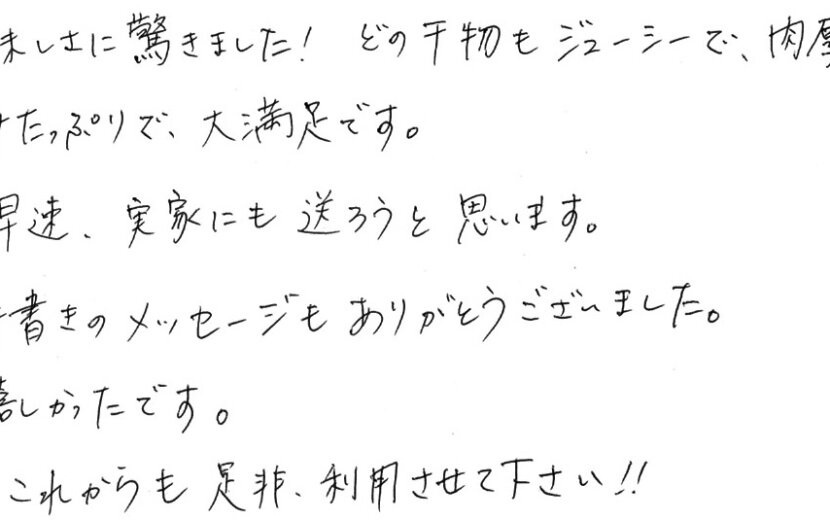 味しさに驚きました! どの干物もジューシーで、肉厚
たっぷりで、大満足です。
早速、実家にも送ろうと思います。
書きのメッセージもありがとうございました。
嬉しかったです。
これからも是非、利用させて下さい!!